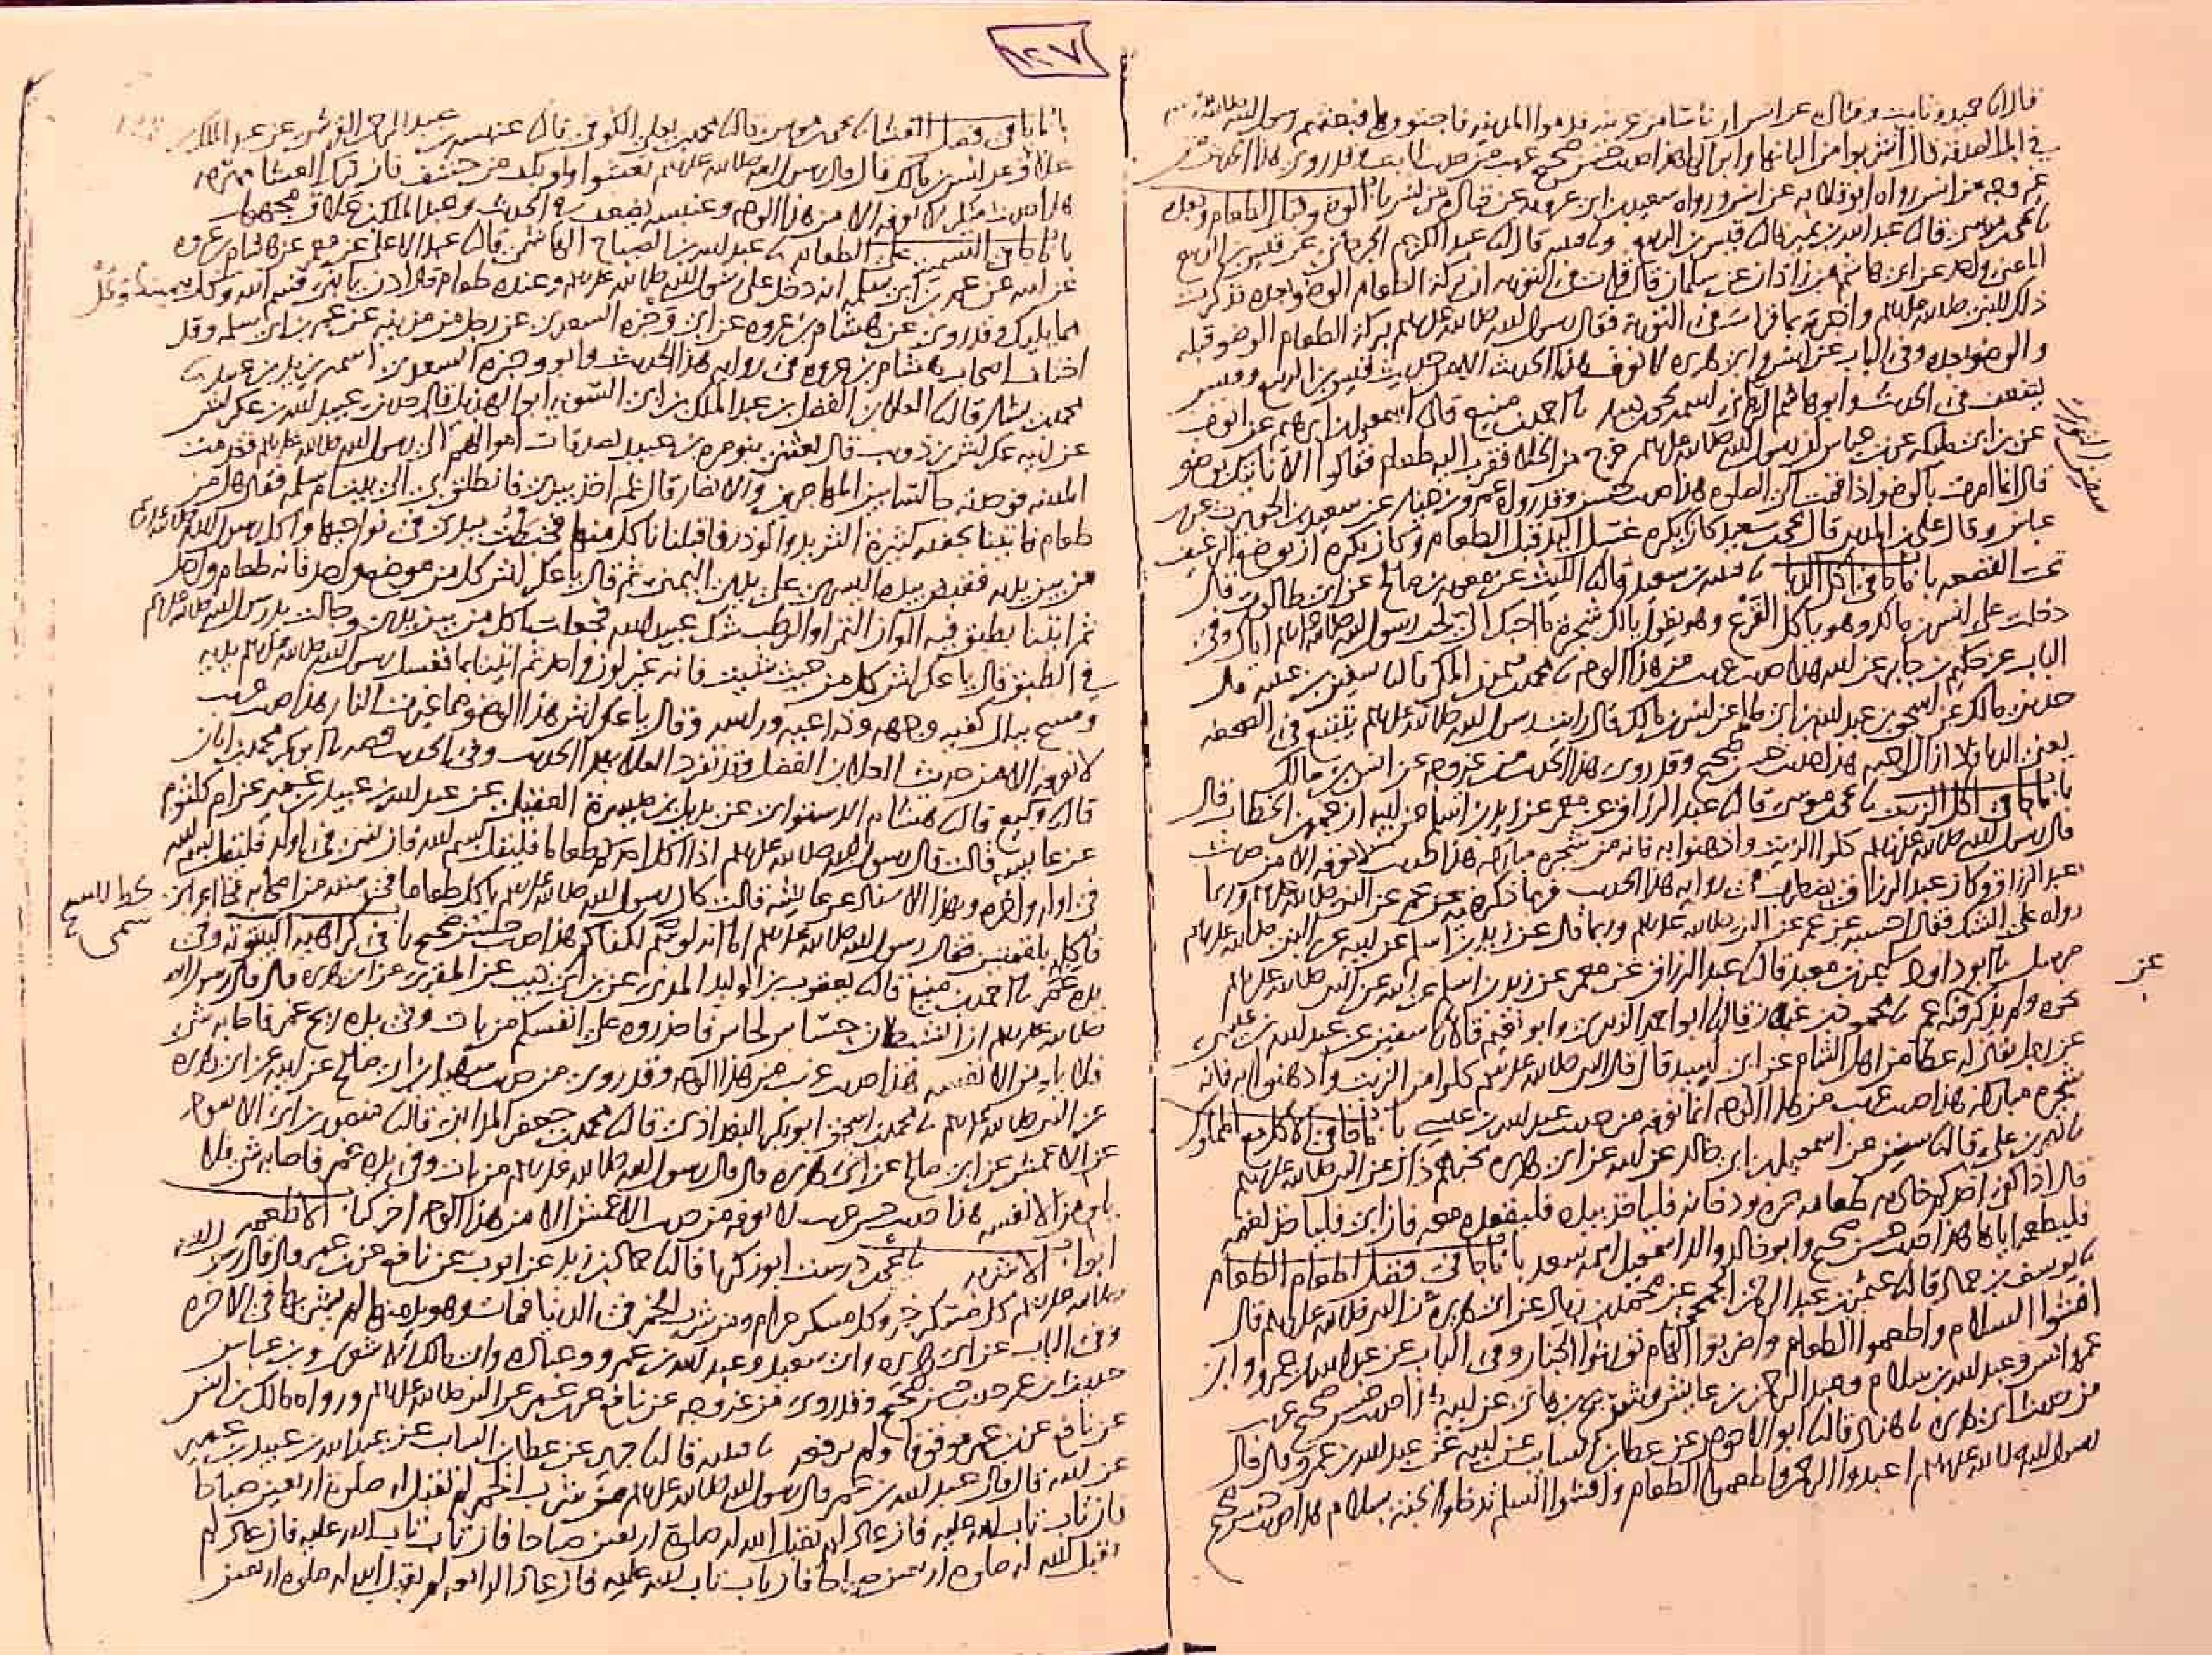 ١٢٧
قال انا حميد وثابت وقتاده عن انس ان ناسا من عرينه قدموا المدينه فاجتووها فبعثهم رسول الله صلى الله عليه وسلم
في ابل الصدقه قال اشربوا من البانها وابوالها هذا حديث حسن صحيح غريب من حديث ثابت وقد روي هذا الحديث من
غير وجه عن انس رواه ابو قلابه عن انس ورواه سعيد بن ابي عروبه عن قتاده عن انس باب الوضو قبل الطعام وبعده
نا يحيى بن موسى قال نا عبد الله بن نمير قال نا قيس بن الربيع ونا قتيبه قال نا عبد الكريم الجرجاني عن قيس بن الربيع
المعنى واحد عن ابي هاشم عن زاذان عن سلمان قال قرات في التوريه ان بركة الطعام الوضو بعده فذكرت
ذلك للنبي صلى الله عليه وسلم واخبرته بما قرات في التورية فقال رسول الله صلى الله عليه وسلم بركة الطعام الوضو قبله
والوضو بعده وفي الباب عن انس وابي هريره لا نعرف هذا الحديث الا من حديث قيس بن الربيع وقيس
يضعف في الحديث وابو هاشم الرماني اسمه يحيى بن دينار نا احمد بن منيع قال نا اسمعيل بن ابرهيم عن ايوب
عن ابن ابي مليكه عن ابن عباس ان رسول الله صلى الله عليه وسلم خرج من الخلا فقرب اليه طعام فقالوا الا ناتيك بوضو
قال انما امرت بالوضو اذا قمت الى الصلوه هذا حديث حسن وقد رواه عمرو بن دينار عن سعيد بن الحويرث عن ابن
عباس وقال علي بن المديني قال يحيى بن سعيد كان سفين الثوري يكره غسل اليد قبل الطعام وكان يكره ان يوضع الرغيف
تحت القصعه باب ما جا في اكل الدبا نا قتيبه بن سعيد قال نا الليث عن معويه بن صالح عن ابي طالوت قال
دخلت على انس بن مالك وهو ياكل القرع وهو يقول يا لك شجرة ما احبك الي لحب رسول الله صلى الله عليه وسلم اياك وفي
الباب عن حكيم بن جابر عن ابيه هذا حديث غريب من هذا الوجه نا محمد بن ميمون المكي قال نا سفين بن عيينه قال
حدثني مالك عن اسحق بن عبد الله بن ابي طلحه عن انس بن مالك قال رايت رسول الله صلى الله عليه وسلم يتتبع في الصحفه
يعني الدبا فلا ازال احبه هذا حديث حسن صحيح وقد روي هذا الحديث من غير وجه عن انس بن مالك
باب ما جا في اكل الزيت نا يحيى بن موسى قال نا عبد الرزاق عن معمر عن زيد بن اسلم عن ابيه ان عمر بن الخطاب قال
قال رسول الله صلى الله عليه وسلم كلوا الزيت وادهنوا به فانه من شجره مباركه هذا حديث لا نعرفه الا من حديث
عبد الرزاق وكان عبد الرزاق يضطرب في روايه هذا الحديث فربما ذكر فيه عن عمر عن النبي صلى الله عليه وسلم وربما
رواه على الشك فقال احسبه عن عمر عن النبي صلى الله عليه وسلم وربما قال عن زيد بن اسلم عن ابيه عن النبي صلى الله عليه وسلم
مرسل نا ابو داود سليمن بن معبد قال نا عبد الرزاق عن معمر عن زيد بن اسلم عن ابيه عن النبي صلى الله عليه وسلم
نحوه ولم يذكر فيه عمر نا محمود بن غيلان قال نا ابو احمد الزبيري وابو نعيم قالا نا سفين عن عبد الله بن عيسى
عن رجل يقال له عطا من اهل الشام عن ابي اسيد قال قال النبي صلى الله عليه وسلم كلوا من الزيت وادهنوا به فانه
شجره مباركه هذا حديث غريب من هذا الوجه انما نعرفه من حديث عبد الله بن عيسى باب ما جا في الاكل مع المملوك
نا نصر بن علي قال نا سفين عن اسمعيل بن ابي خالد عن ابيه عن ابي هريره يخبرهم ذاك عن النبي صلى الله عليه وسلم
قال اذا كفى احدكم خادمه طعامه حره ودخانه فلياخذ بيده فليقعده معه فان ابى فلياخذ لقمه
فليطعمه اياها هذا حديث حسن صحيح وابو خالد والد اسمعيل اسمه سعد باب ما جا في فضل اطعام الطعام
نا يوسف بن حماد قال نا عثمن بن عبد الرحمن الجمحي عن محمد بن زياد عن ابي هريره عن النبي صلى الله عليه وسلم قال
افشوا السلام واطعموا الطعام واضربوا الهام تورثوا الجنان وفي الباب عن عبد الله بن عمرو وابن
عمر وانس وعبد الله بن سلام وعبد الرحمن بن عايش وشريح بن هاني عن ابيه هذا حديث حسن صحيح غريب
من حديث ابي هريره نا هناد قال نا ابو الاحوص عن عطا بن السايب عن ابيه عن عبد الله بن عمرو قال قال
رسول الله صلى الله عليه وسلم اعبدوا الرحمن واطعموا الطعام وافشوا السلم تدخلوا الجنه بسلام هذا حديث حسن صحيح
سفين الثوري
عن
باب ما جا في فضل العشا نا يحيى بن موسى قال نا محمد بن يعلى الكوفي قال نا عنبسه بن عبد الرحمن القرشي عن عبد الملك بن
علاق عن انس بن مالك قال قال رسول الله صلى الله عليه وسلم تعشوا ولو بكف من حشف فان ترك العشا مهرمه
هذا حديث منكر لا نعرفه الا من هذا الوجه وعنبسه يضعف في الحديث وعبد الملك بن علاق مجهول
باب ما جا في التسميه على الطعام نا عبد الله بن الصباح الهاشمي قال نا عبد الاعلى عن معمر عن هشام بن عروه
عن ابيه عن عمر بن ابي سلمه انه دخل على رسول الله صلى الله عليه وسلم وعنده طعام فقال ادن يا بني فسم الله وكل بيمينك وكل
مما يليك وقد روي عن هشام بن عروه عن ابي وجزه السعدي عن رجل من مزينه عن عمر بن ابي سلمه وقد
اختلف اصحاب هشام بن عروه في روايه هذا الحديث وابو وجزه السعدي اسمه يزيد بن عبيد نا
محمد بن بشار قال نا العلا بن الفضل بن عبد الملك بن ابي السويه ابو الهذيل قال حدثني عبيد الله بن عكراش
عن ابيه عكراش بن ذويب قال بعثني بنو مره بن عبيد بصدقات اموالهم الى رسول الله صلى الله عليه وسلم فقدمت
المدينه فوجدته جالسا بين المهاجرين والانصار قال ثم اخذ بيدي فانطلق بي الى بيت ام سلمه فقال هل من
طعام فاتينا بجفنه كثيرة الثريد والوذر فاقبلنا ناكل منها فخبطت بيدي في نواحيها واكل رسول الله صلى الله عليه وسلم
من بين يديه فقبض بيده اليسرى على يدي اليمنى ثم قال يا عكراش كل من موضع واحد فانه طعام واحد
ثم اتينا بطبق فيه الوان التمر او الرطب شك عبيد الله فجعلت اكل من بين يدي وجالت يد رسول الله صلى الله عليه وسلم
في الطبق قال يا عكراش كل من حيث شيت فانه غير لون واحد ثم اتينا بما فغسل رسول الله صلى الله عليه وسلم يديه
ومسح ببلل كفيه وجهه وذراعيه وراسه وقال يا عكراش هذا الوضو مما غيرت النار هذا حديث غريب
لا نعرفه الا من حديث العلا بن الفضل وقد تفرد العلا بهذا الحديث وفي الحديث قصه نا ابو بكر محمد بن ابان
قال نا وكيع قال نا هشام الدستوائي عن بديل بن ميسرة العقيلي عن عبد الله بن عبيد بن عمير عن ام كلثوم
عن عايشه قالت قال رسول الله صلى الله عليه وسلم اذا اكل احدكم طعاما فليقل بسم الله فان نسي في اوله فليقل بسم الله
في اوله واخره وبهذا الاسناد عن عايشه قالت كان رسول الله صلى الله عليه وسلم ياكل طعاما في سته من اصحابه فجا اعرابي
فاكله بلقمتين فقال رسول الله صلى الله عليه وسلم اما انه لو سمى لكفاكم هذا حديث حسن صحيح باب في كراهيه البيتوته وفي
يده غمر نا احمد بن منيع قال نا يعقوب بن الوليد المدني عن ابن ابي ذيب عن المقبري عن ابي هريره قال قال رسول الله
صلى الله عليه وسلم ان الشيطان حساس لحاس فاحذروه على انفسكم من بات وفي يده ريح غمر فاصابه شي
فلا يلومن الا نفسه هذا حديث غريب من هذا الوجه وقد روي من حديث سهيل بن ابي صالح عن ابيه عن ابي هريره
عن النبي صلى الله عليه وسلم نا محمد بن اسحق ابو بكر البغداذي قال نا محمد بن جعفر المدايني قال نا منصور بن ابي الاسود
عن الاعمش عن ابي صالح عن ابي هريره قال قال رسول الله صلى الله عليه وسلم من بات وفي يده غمر فاصابه شي فلا
يلومن الا نفسه هذا حديث حسن غريب لا نعرفه من حديث الاعمش الا من هذا الوجه اخر كتاب الاطعمه
ابواب الاشربه نا يحيى بن درست ابو زكريا قال نا حماد بن زيد عن ايوب عن نافع عن ابن عمر قال قال رسول الله
صلى الله عليه وسلم كل مسكر خمر وكل مسكر حرام ومن شرب الخمر في الدنيا فمات وهو يدمنها لم يشربها في الاخره
وفي الباب عن ابي هريره وابي سعيد وعبد الله بن عمرو وعباده وابي مالك الاشعري وابن عباس
حديث ابن عمر حديث حسن صحيح وقد روي من غير وجه عن نافع عن ابن عمر عن النبي صلى الله عليه وسلم ورواه مالك بن انس
عن نافع عن ابن عمر موقوفا ولم يرفعه نا قتيبه قال نا جرير عن عطا بن السايب عن عبد الله بن عبيد بن عمير
عن ابيه قال قال عبد الله بن عمر قال رسول الله صلى الله عليه وسلم من شرب الخمر لم تقبل له صلوة اربعين صباحا
فان تاب تاب الله عليه فان عاد لم يقبل الله له صلوة اربعين صباحا فان تاب تاب الله عليه فان عاد لم
يقبل الله له صلوه اربعين صباحا فان تاب تاب الله عليه فان عاد الرابعه لم يقبل الله له صلوه اربعين